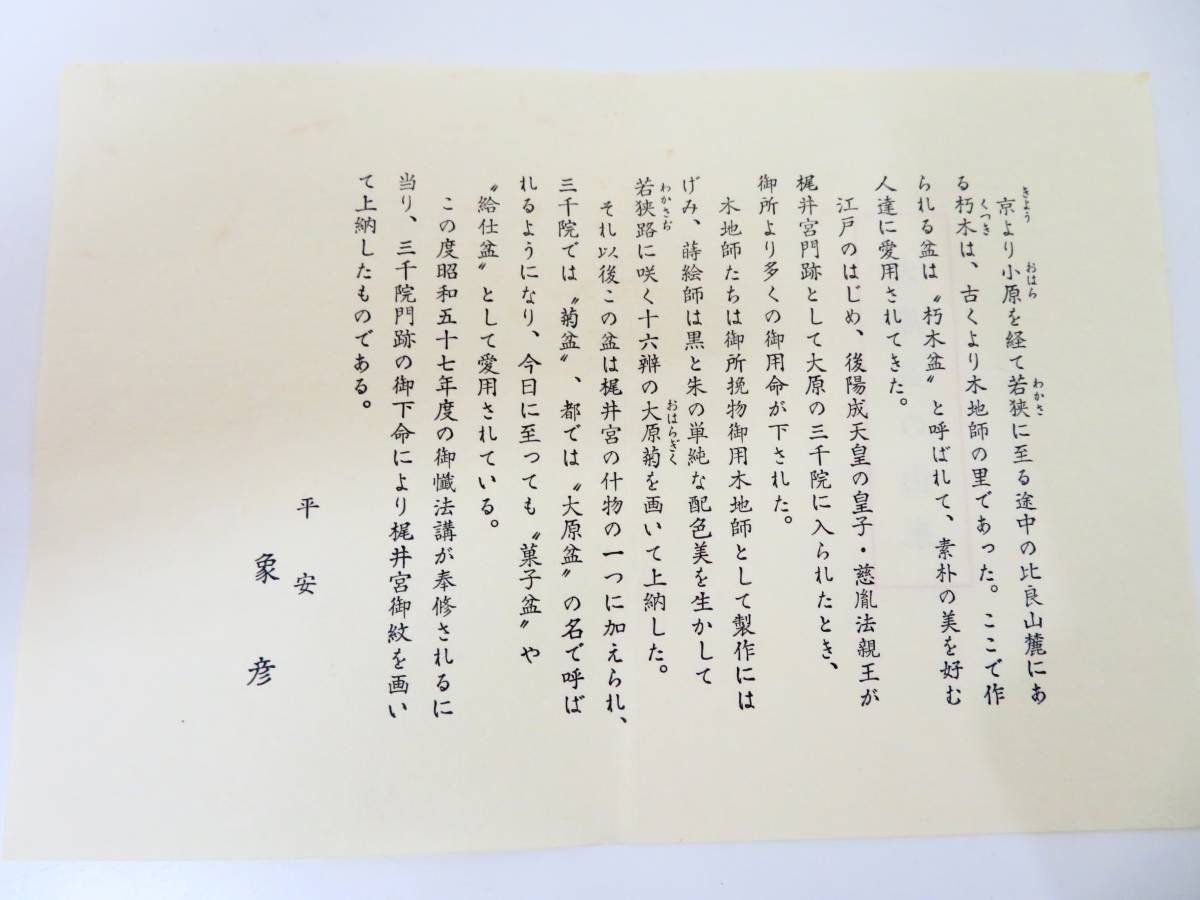 京より小原を経て若狭に至る途中の比良山麓にあ
きょう
おはら
わかさ
る朽木は、古くより木地師の里であった。ここで作
くつき
られる盆は〝朽木盆〟と呼ばれて、素朴の美を好む
人達に愛用されてきた。
江戸のはじめ、後陽成天皇の皇子・慈胤法親王が
梶井宮門跡として大原の三千院に入られたとき、
御所より多くの御用命が下された。
木地師たちは御所挽物御用木地師として製作には
げみ、蒔絵師は黒と朱の単純な配色美を生かして
若狭路に咲く十六辨の大原菊を画いて上納した。
わかさぢ
おはらぎく
それ以後この盆は梶井宮の什物の一つに加えられ、
三千院では〝菊盆〟、都では〝大原盆〟の名で呼ば
れるようになり、今日に至っても〝菓子盆〟や
〝給仕盆〟として愛用されている。
この度昭和五十七年度の御懺法講が奉修されるに
当り、三千院門跡の御下命により梶井宮御紋を画い
て上納したものである。
平安
象彦